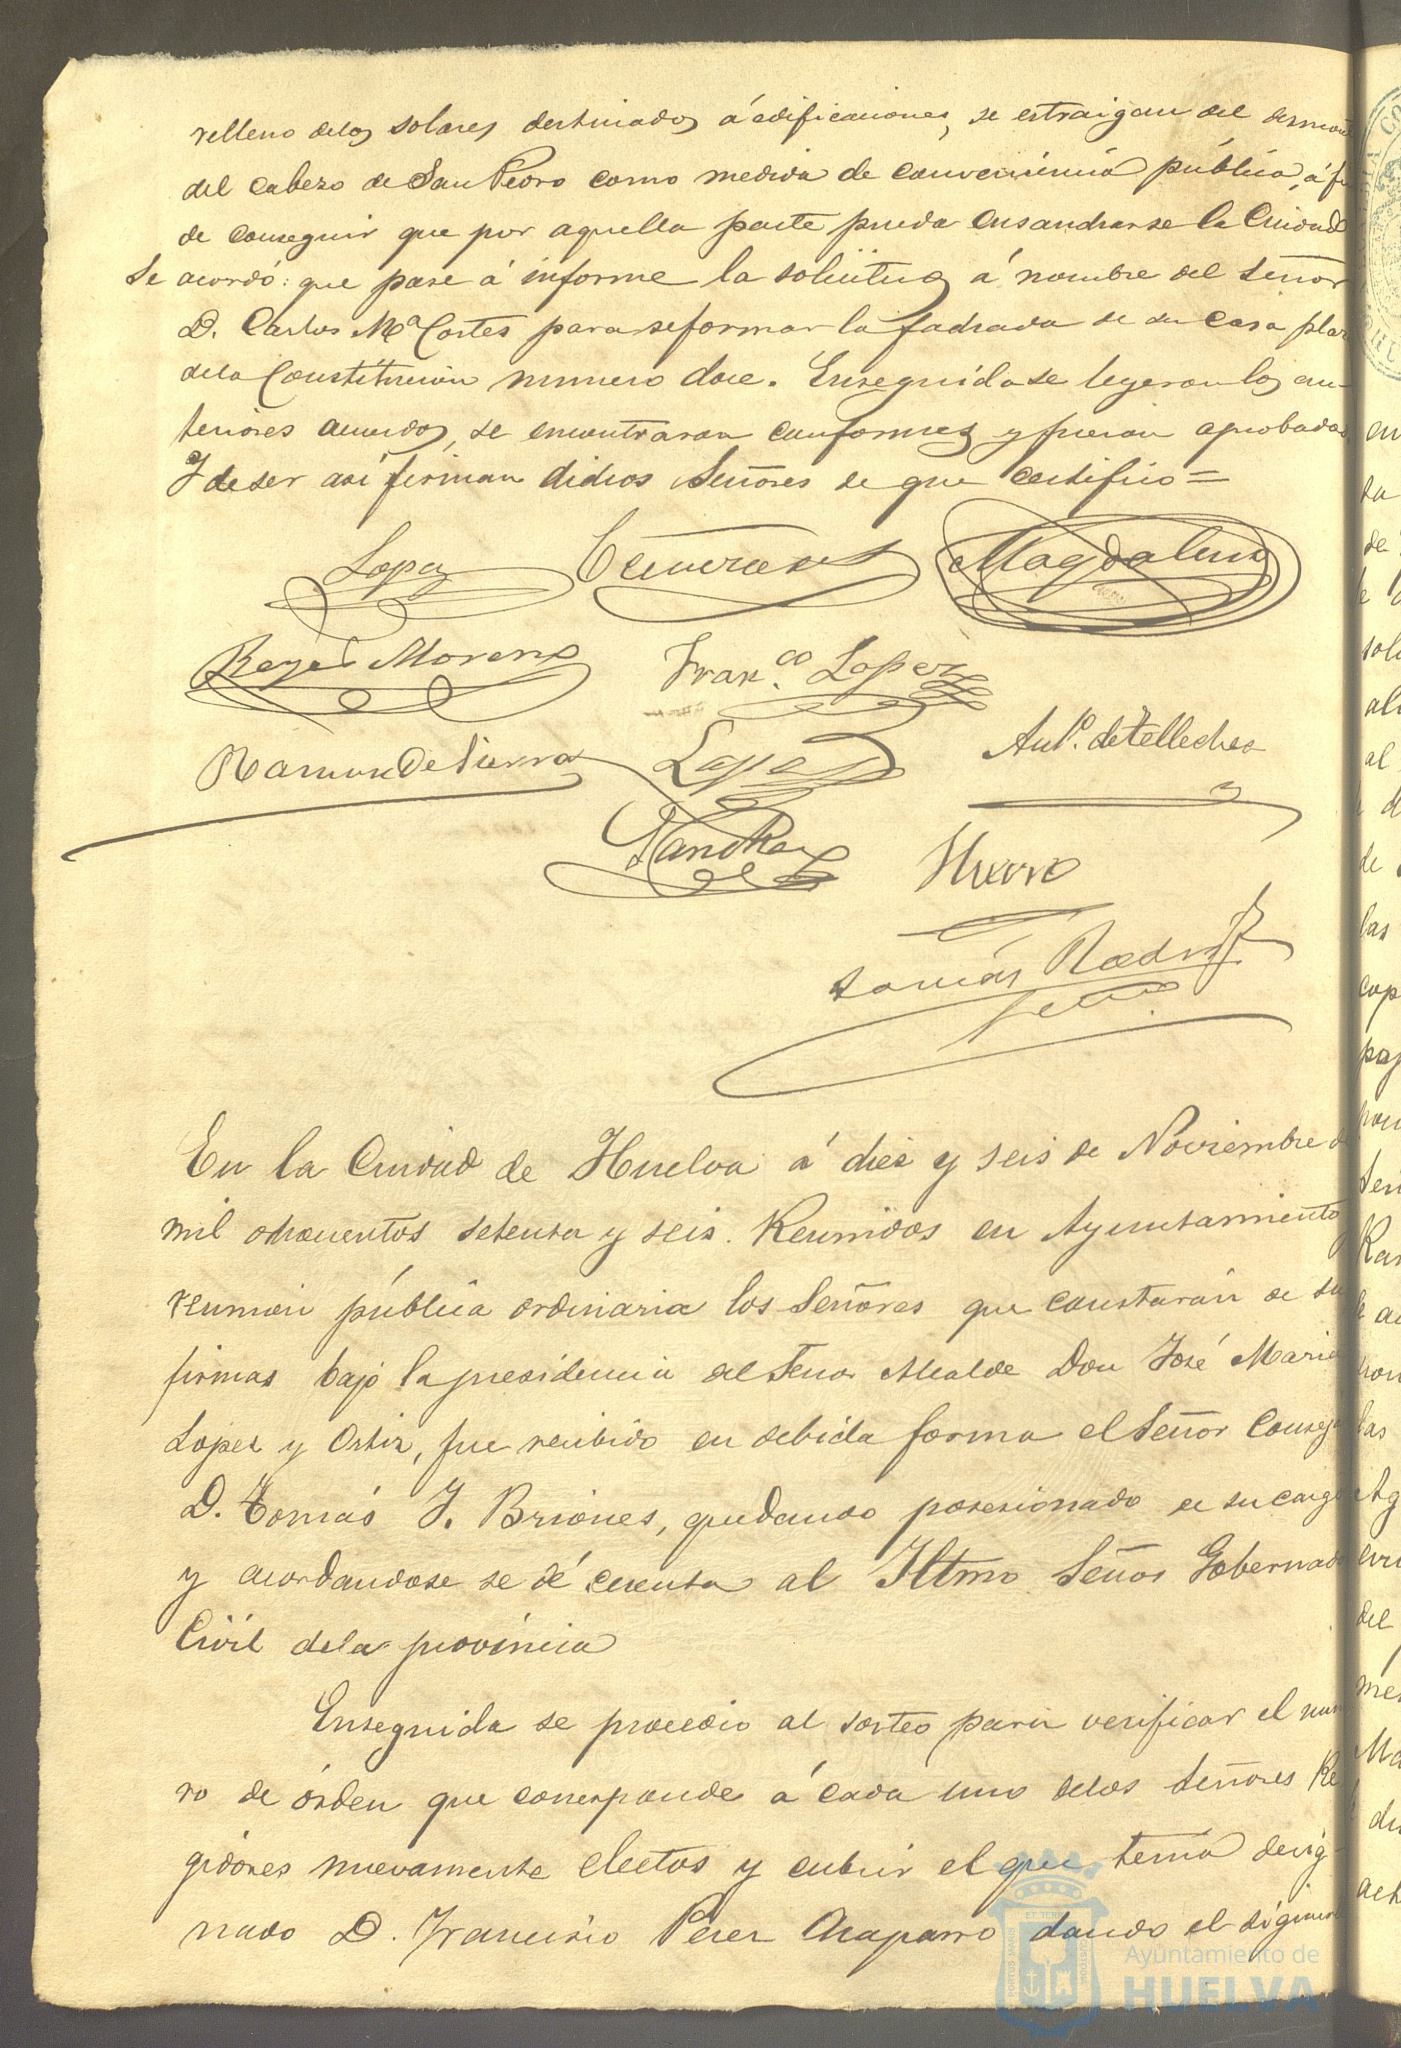 relleno delos solares destinados á edificaciones, se estraigan del desmon
del cabezo de San Pedro como medida de conveniencia pública, á fi
de conseguir que por aquella parte pueda ensancharse la Ciudad
Se acordó: que pase á informe la solicitud á nombre del Señor
D. Carlos Mª Cortes para reformar la fachada de su casa plaz
dela Constitucion numero doce. Enseguida se leyeron los an-
teriores acuerdos, se encontraron conformes y fueron aprobados
Y de ser asi firman dichos Señores de que certifico =
Lopez
Magdalena
Reyes Moreno Fran.co Lopez
Ramon de Sierra Lopez Ant.o de Tellechea
Sanchez Hierro
Tomás Rodrig
En la Ciudad de Huelva á diez y seis de Noviembre d
mil ochocientos setenta y seis. Reunidos en Ayuntamiento
reunion pública ordinaria los Señores que constarán de su
firmas bajo la presidencia del Senor Alcalde Don José Maria
Lopez y Ortiz, fue recibido en debida forma el Señor Conseja
D. Tomás J. Briones, quedando posesionado de su cargo
y acordandose se dé cuenta al Iltmo Señor Gobernado
Civil dela provincia
Enseguida se procedio al sorteo para verificar el num
ro de órden que corresponde á cada uno delos Señores Re
gidores nuevamente electos y cubrir el que tenia desig-
nado D. Francisco Perez Chaparro dando el siguien
Ayuntamiento de
HUELVA